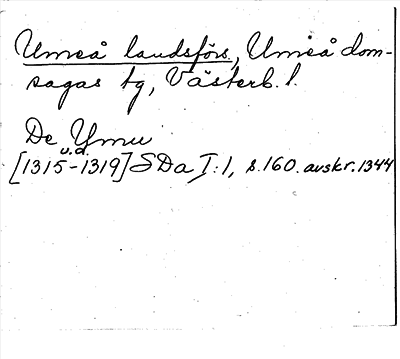 Umeå landsförs., Umeå dom-
sagas tg, Västerb. l.
De Ymu
u.d.
[1315-1319] SDa I:1, s.160. avskr. 1344